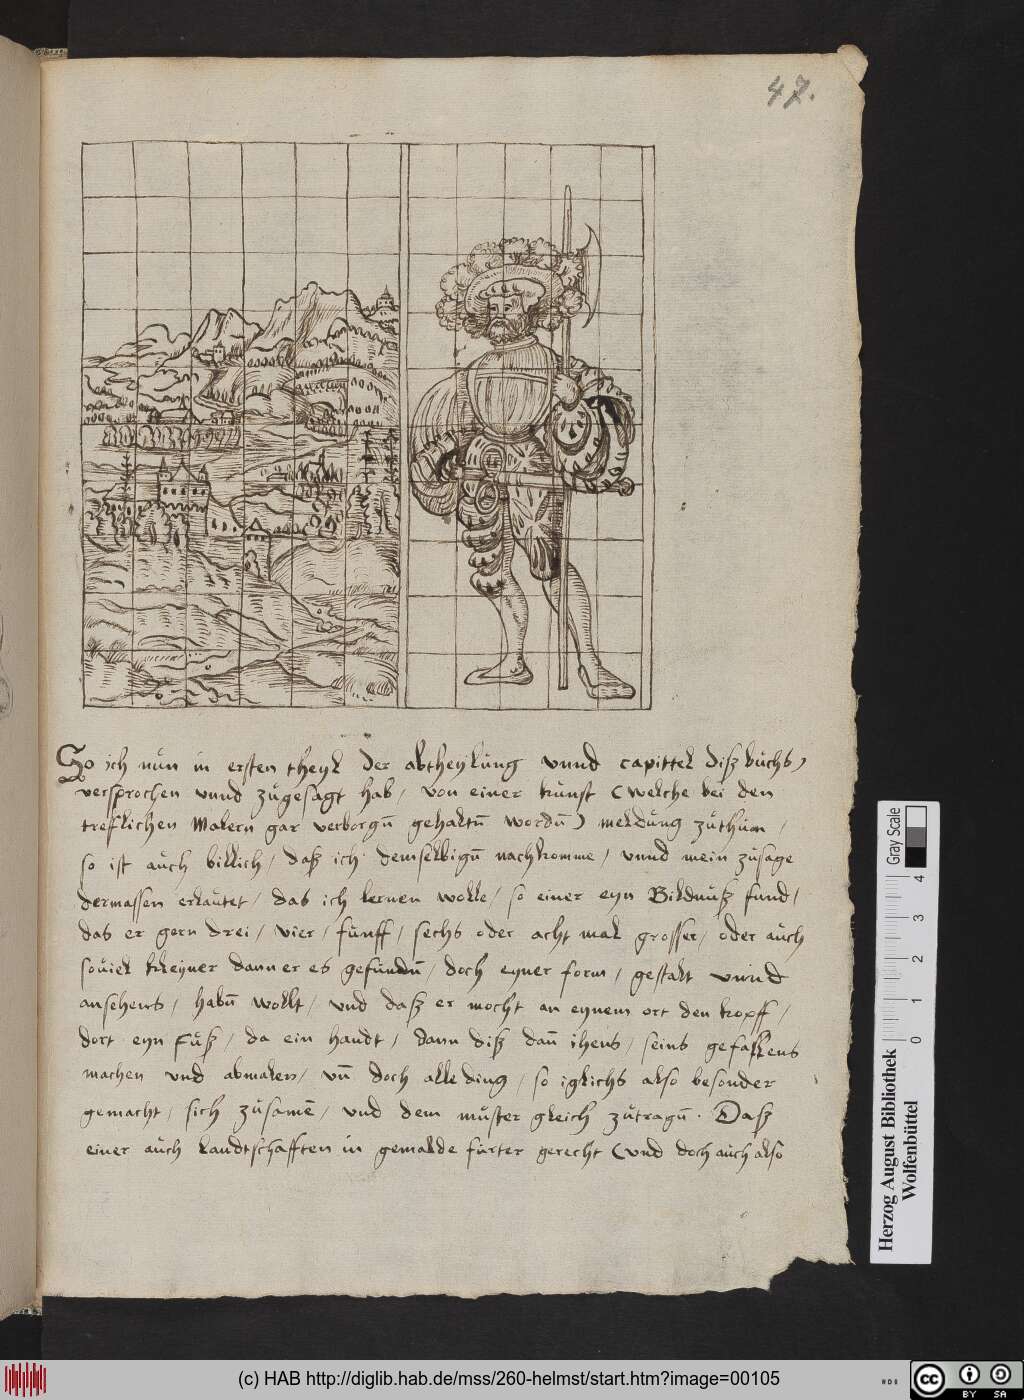 47.
So ich nun in ersten theyl der abtheylung vnnd capittel diß buchs /
versprochen vnnd zugesagt hab / von einer kunst ( welche bei den
treflichen Malern gar verborgn̄ gehaltn̄ wordn̄ ) meldung zuthun /
so ist auch billich / daß ich demselbign̄ nachkomme / vnnd mein zusage
dermassen erlautet / das ich lernen wolle / so einer eyn Bildnuß fund /
das er gern drei / vier / funff / sechs oder acht mal grosser / oder auch
souiel kleyner dann er es gefundn̄ / doch eyner form / gestalt vnnd
ansehens / habn̄ wollt / vnd daß er mocht an eynem ort den kopff /
dort eyn Fuß / da ein handt / dann diß dan̄ ihens / seins gefallens
machen vnd abmalen / vn̄ doch alle ding / so iglichs also besonder
gemacht / sich zusamē / vnd dem muster gleich zutragn̄ . Daß
einer auch landtschafften in gemalde furter gerecht ( vnd doch auch also
Gray Scale
0 1 2 3 4
Herzog August Bibliothek
Wolfenbüttel
(c) HAB http://diglib.hab.de/mss/260-helmst/start.htm?image=00105
cc BY SA